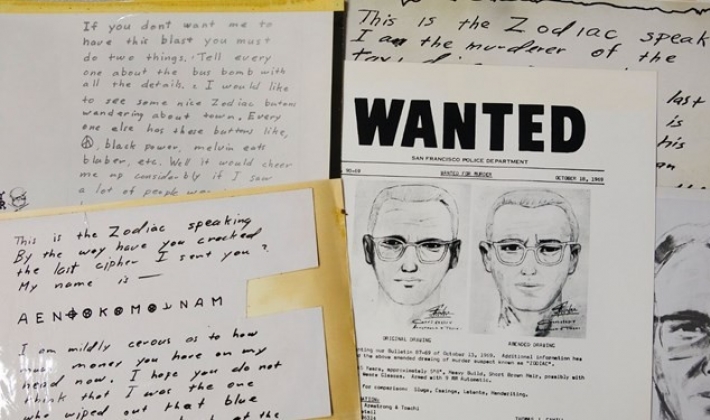 If you don't want me to
have this blast you must
do two things. Tell every
one about the bus bomb with
all the details. I would like
to see some nice Zodiac butons
wandering about town. Every
one else has these buttons like,
☮, black power, melvin eats
blaber, etc. Well it would cheer
me up considerbly if I saw
a lot of people
This is the Zodiac speaking
By the way have you cracked
the last cipher I sent you?
My name is —
A E N ⊕ K O M O N A M
I am mildly cerous as to how
much money you have on my
head now. I hope you do not
think that I was the one
who wiped out that blue
at the
This is the Zodiac speak
I am the murderer of the
last
is
his
an
WANTED
SAN FRANCISCO POLICE DEPARTMENT
90-69 WANTED FOR MURDER OCTOBER 18, 1969
ORIGINAL DRAWING AMENDED DRAWING
ting our Bulletin 87-69 of October 13, 1969. Additional information has
the above amended drawing of murder suspect known as "ZODIAC".
Years, approximately 5'8", Heavy Build, Short Brown Hair, possibly with
Wears Glasses. Armed with 9 MM Automatic.
for comparison: Slugs, Casings, Latents, Handwriting.
Armstrong & Toschi